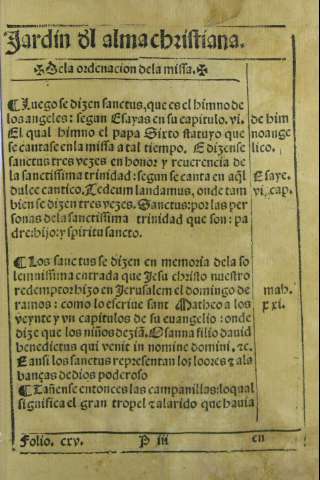 Jardin dl alma christiana.
✠De la ordenacion de la missa.✠
¶Luego se dizen sanctus, que es el himno de
los angeles: segun Esayas en su capitulo. vi.
El qual himno el papa Sixto statuyo que
se cantase en la missa a tal tiempo. E dizense
sanctus tres vezes en honor y reuerencia de
la sanctissima trinidad: segun se canta en aq̃l
dulce cantico. Tedeum landamus, onde tam
bien se dizen tres vezes. Sanctus: por las per
sonas dela sanctissima trinidad que son: pa
dre: hijo: y spiritu sancto.
de him
no ange
lico.
Esaye.
vi. cap.
¶Los sanctus se dizen en memoria dela so
lemnissima entrada que Jesu christo nuestro
redemptor hizo en Jerusalem el domingo de
ramos: como lo escriue sant Matheo a los
veynte y vn capitulos de su euangelio: onde
dize que los niños deziã. Osanna filio dauid
benedictus qui venit in nomine domini, ⁊c.
E ansi los sanctus representan los loores ⁊ ala
banças de dios poderoso
mah.
xxi.
¶Tañense entonces las campanillas: lo qual
significa el gran tropel ⁊ alarido que hauia
Folio. cxv. P iii en